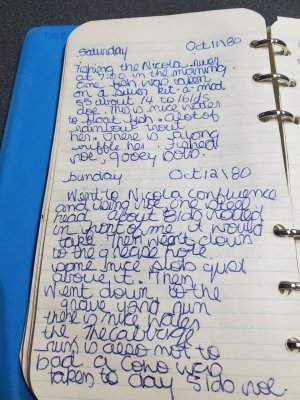 Saturday Oct 11/80
Fishing the Nicola river
at 7:00 in the morning
one fish was taken
on a silver kit-a-mat
55 about 14 to 16 lbs
doe. This is nice water
to float fish. A lot of
rainbow trout
her. There is a long
ruffle her. I ished
roe, gooey bobs.
Sunday Oct 12/80
Went to Nicola confluence
and using roe one steel
head about 8 lbs rolled
in front of me, it would
take. Then went down
to the grease hole
some nice slob quat
above it. Then
Went down to the
grave yard run
there is nice water
the
run is also not to
bad. a coho was
taken to day 5 lbs roe.